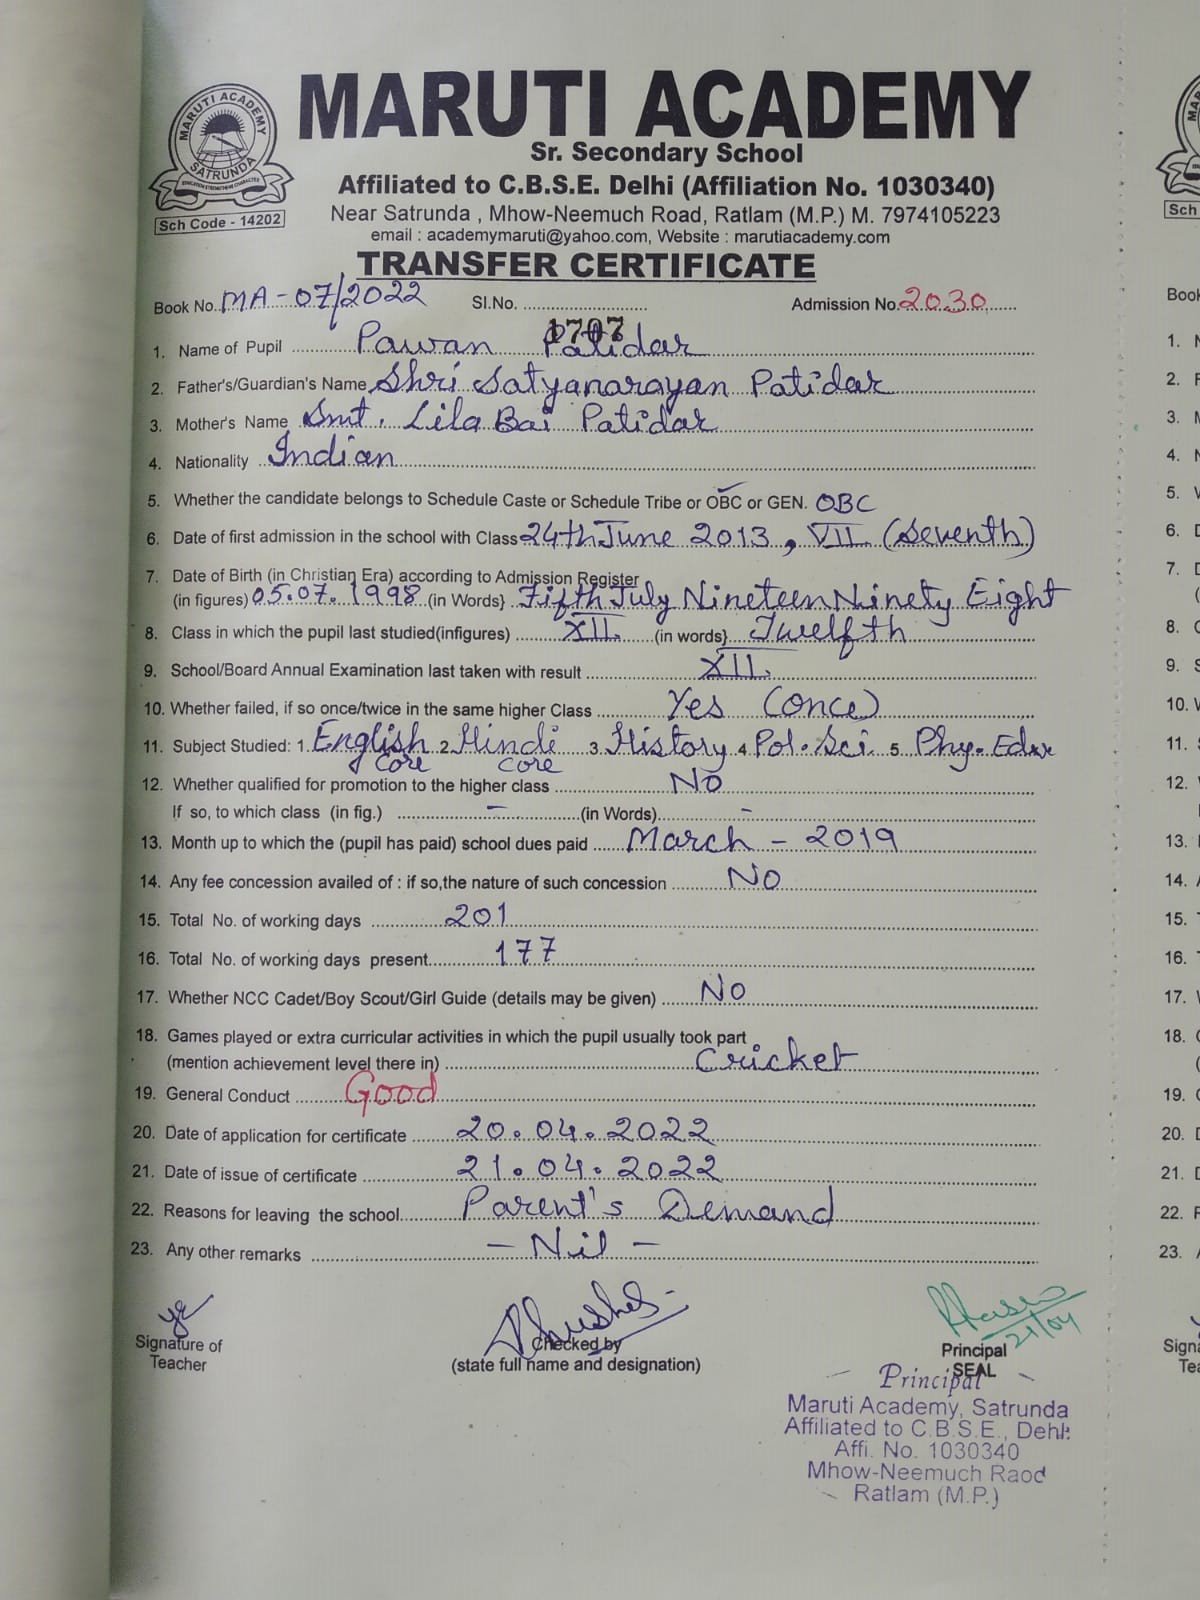 MARUTI ACADEMY
SATRUNDA
Sch Code - 14202
MARUTI ACADEMY
Sr. Secondary School
Affiliated to C.B.S.E. Delhi (Affiliation No. 1030340)
Near Satrunda , Mhow-Neemuch Road, Ratlam (M.P.) M. 7974105223
email : academymaruti@yahoo.com, Website : marutiacademy.com
TRANSFER CERTIFICATE
Book No. MA-07/2022 Sl.No. Admission No. 2030
1707
1. Name of Pupil Pawan Patidar
2. Father's/Guardian's Name Shri Satyanarayan Patidar
3. Mother's Name Smt. Lila Bai Patidar
4. Nationality Indian
5. Whether the candidate belongs to Schedule Caste or Schedule Tribe or OBC or GEN. OBC
6. Date of first admission in the school with Class 24th June 2013, VII (Seventh)
7. Date of Birth (in Christian Era) according to Admission Register
(in figures) 05.07.1998 (in Words} Fifth July Nineteen Ninety Eight
8. Class in which the pupil last studied(infigures) XII (in words} Twelfth
9. School/Board Annual Examination last taken with result XII
10. Whether failed, if so once/twice in the same higher Class Yes (once)
11. Subject Studied: 1. English 2. Hindi 3. History 4 Pol. Sci. 5. Phy. Edu
core core
12. Whether qualified for promotion to the higher class NO
If so, to which class (in fig.) - (in Words) -
13. Month up to which the (pupil has paid) school dues paid March - 2019
14. Any fee concession availed of : if so,the nature of such concession NO
15. Total No. of working days 201
16. Total No. of working days present 177
17. Whether NCC Cadet/Boy Scout/Girl Guide (details may be given) NO
18. Games played or extra curricular activities in which the pupil usually took part
(mention achievement level there in) Cricket
19. General Conduct Good
20. Date of application for certificate 20.04.2022
21. Date of issue of certificate 21.04.2022
22. Reasons for leaving the school Parent's Demand
23. Any other remarks - Nil -
21/04
Signature of
Teacher
Checked by
(state full name and designation)
Principal
SEAL
Principal
Maruti Academy, Satrunda
Affiliated to C.B.S.E., Dehli
Affi. No. 1030340
Mhow-Neemuch Raod
Ratlam (M.P.)
Sch
Book
1.
2.
3.
4.
5.
6.
7.
8.
9.
10.
11.
12.
13.
14.
15.
16.
17.
18.
19.
20.
21.
22.
23.
Signa
Tea